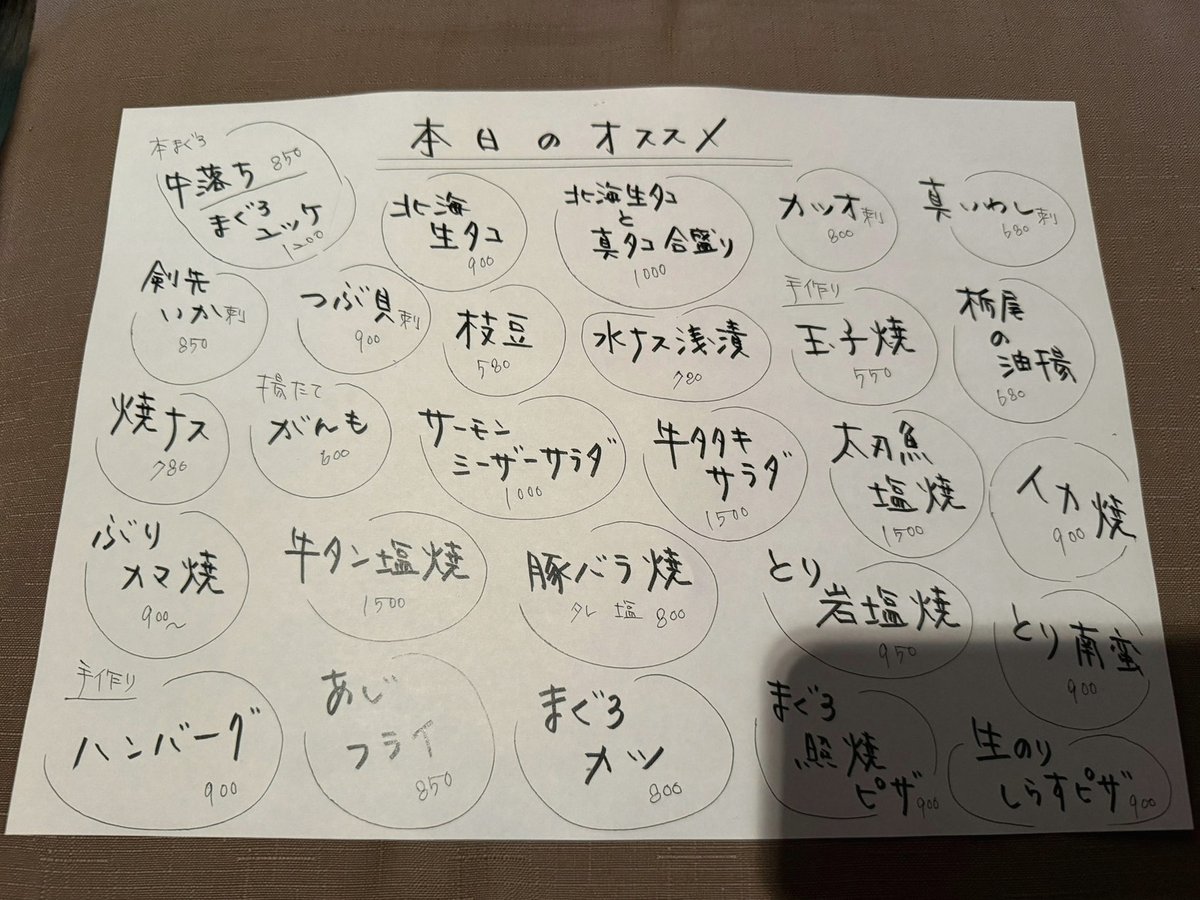 本日のオススメ
本まぐろ
中落ち 850
まぐろ
ユッケ
1200
北海
生タコ
900
北海生タコ
と
真タコ合盛り
1000
カツオ刺
800
真いわし刺
680
剣先
いか刺
850
つぶ貝刺
900
枝豆
580
水ナス浅漬
780
手作り
玉子焼
550
栃尾
の
油揚
680
焼ナス
780
揚たて
がんも
600
サーモン
ミーザーサラダ
1000
牛タタキ
サラダ
1500
太刀魚
塩焼
1500
イカ焼
900
ぶり
カマ焼
900~
牛タン塩焼
1500
豚バラ焼
タレ 塩 800
とり
岩塩焼
950
とり南蛮
900
手作り
ハンバーグ
900
あじ
フライ
850
まぐろ
カツ
800
まぐろ
照焼
ピザ900
生のり
しらすピザ900